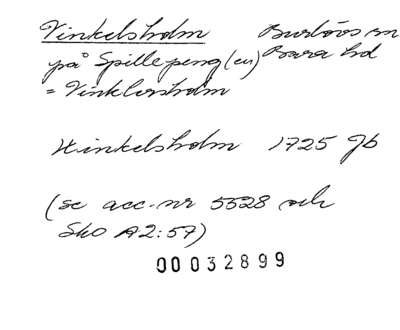 Vinkelsholm Burlövs sn
på Spillepeng(en) Bara hd
= Vinklersholm
Hinkelsholm 1725 Jb
(se acc.nr 5528 och
Sko A2:57)
00032899